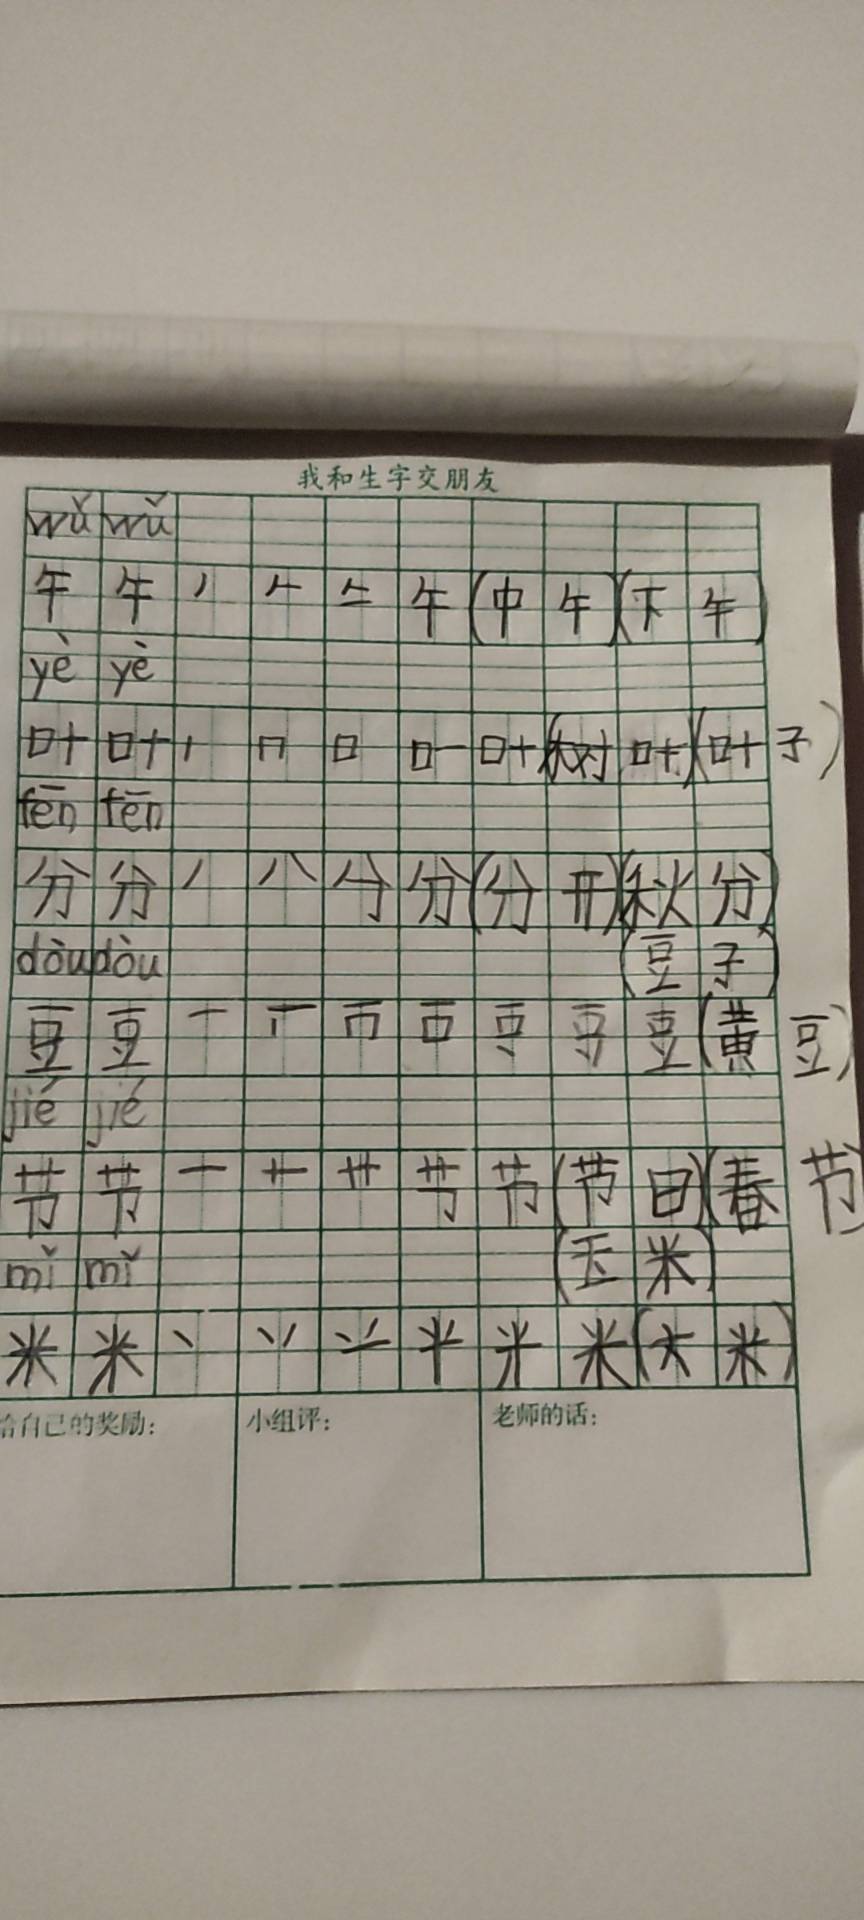 我和生字交朋友
wǔ wǔ
午 午 丿 𠂉 午 (中 午)(下 午)
yè yè
叶 叶 丨 冂 口 叶 (树 叶)(叶 子)
fēn fēn
分 分 丿 八 分 分 (分 开)(秋 分)
dòu dòu (豆 子)
豆 豆 一 豆 (黄 豆)
jié jié
节 节 一 十 艹 节 节 (节 日)(春 节)
mǐ mǐ (玉 米)
米 米 丶 丷 米 米 (大 米)
给自己的奖励: 小组评: 老师的话: